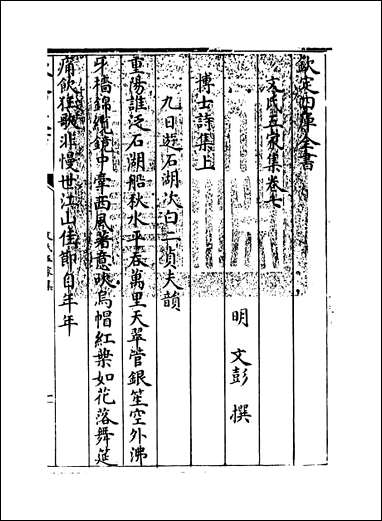 欽定四庫全書
文氏五家集卷七
明 文彭 撰
博士詩集上
九日遊石湖次白二貞夫韻
重陽誰泛石湖船秋水平吞萬里天翠管銀笙空外沸
牙檣錦纜鏡中牽西風著意吹烏帽紅葉如花落舞筵
痛飲狂歌非慢世江山佳節自年年